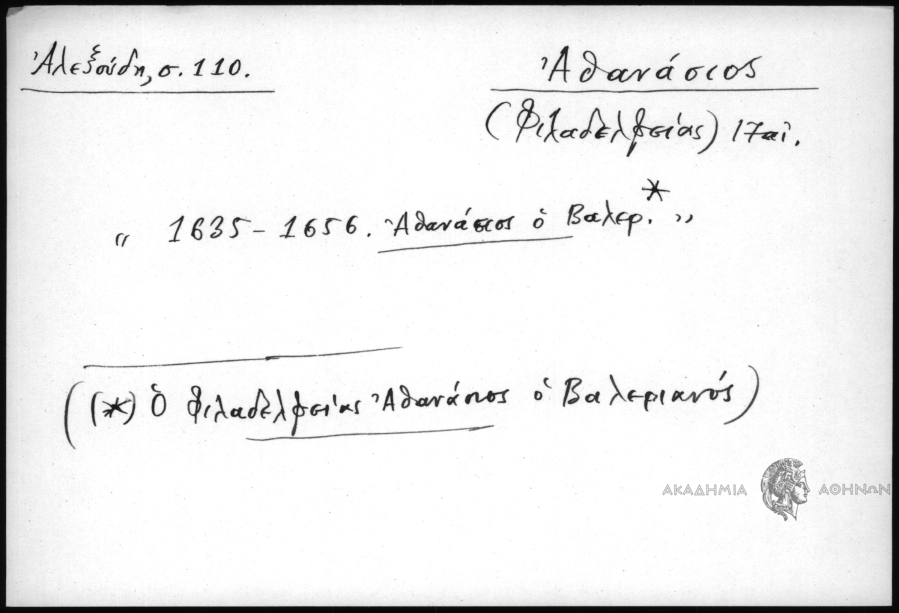 Ἀλεξούδη, σ. 110.
Ἀθανάσιος
(Φιλαδελφείας) 17 αἰ.
“ 1635 - 1656. Ἀθανάσιος ὁ Βαλερ.* ”
((*) Ὁ Φιλαδελφείας Ἀθανάσιος ὁ Βαλεριανός)
ΑΚΑΔΗΜΙΑ ΑΘΗΝΩΝ